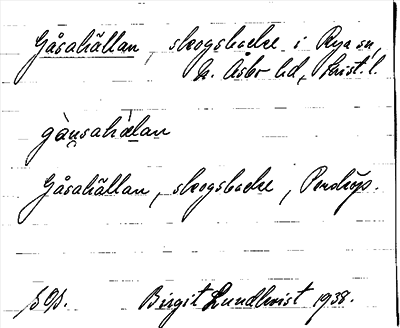 Gåsahällan, skogsbacke i Rya sn,
N. Åsbo hd, Krist. l.
gàu̯sahàlan
Gåsahällan, skogsbacke, Perstorp.
Birgit Lundkvist 1938.